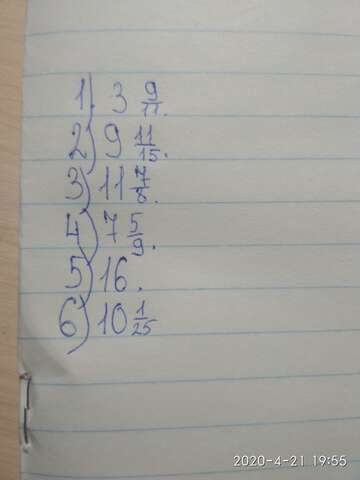 1) 3 9/11.
2) 9 11/15.
3) 11 7/8.
4) 7 5/9.
5) 16.
6) 10 1/25
2020-4-21 19:55